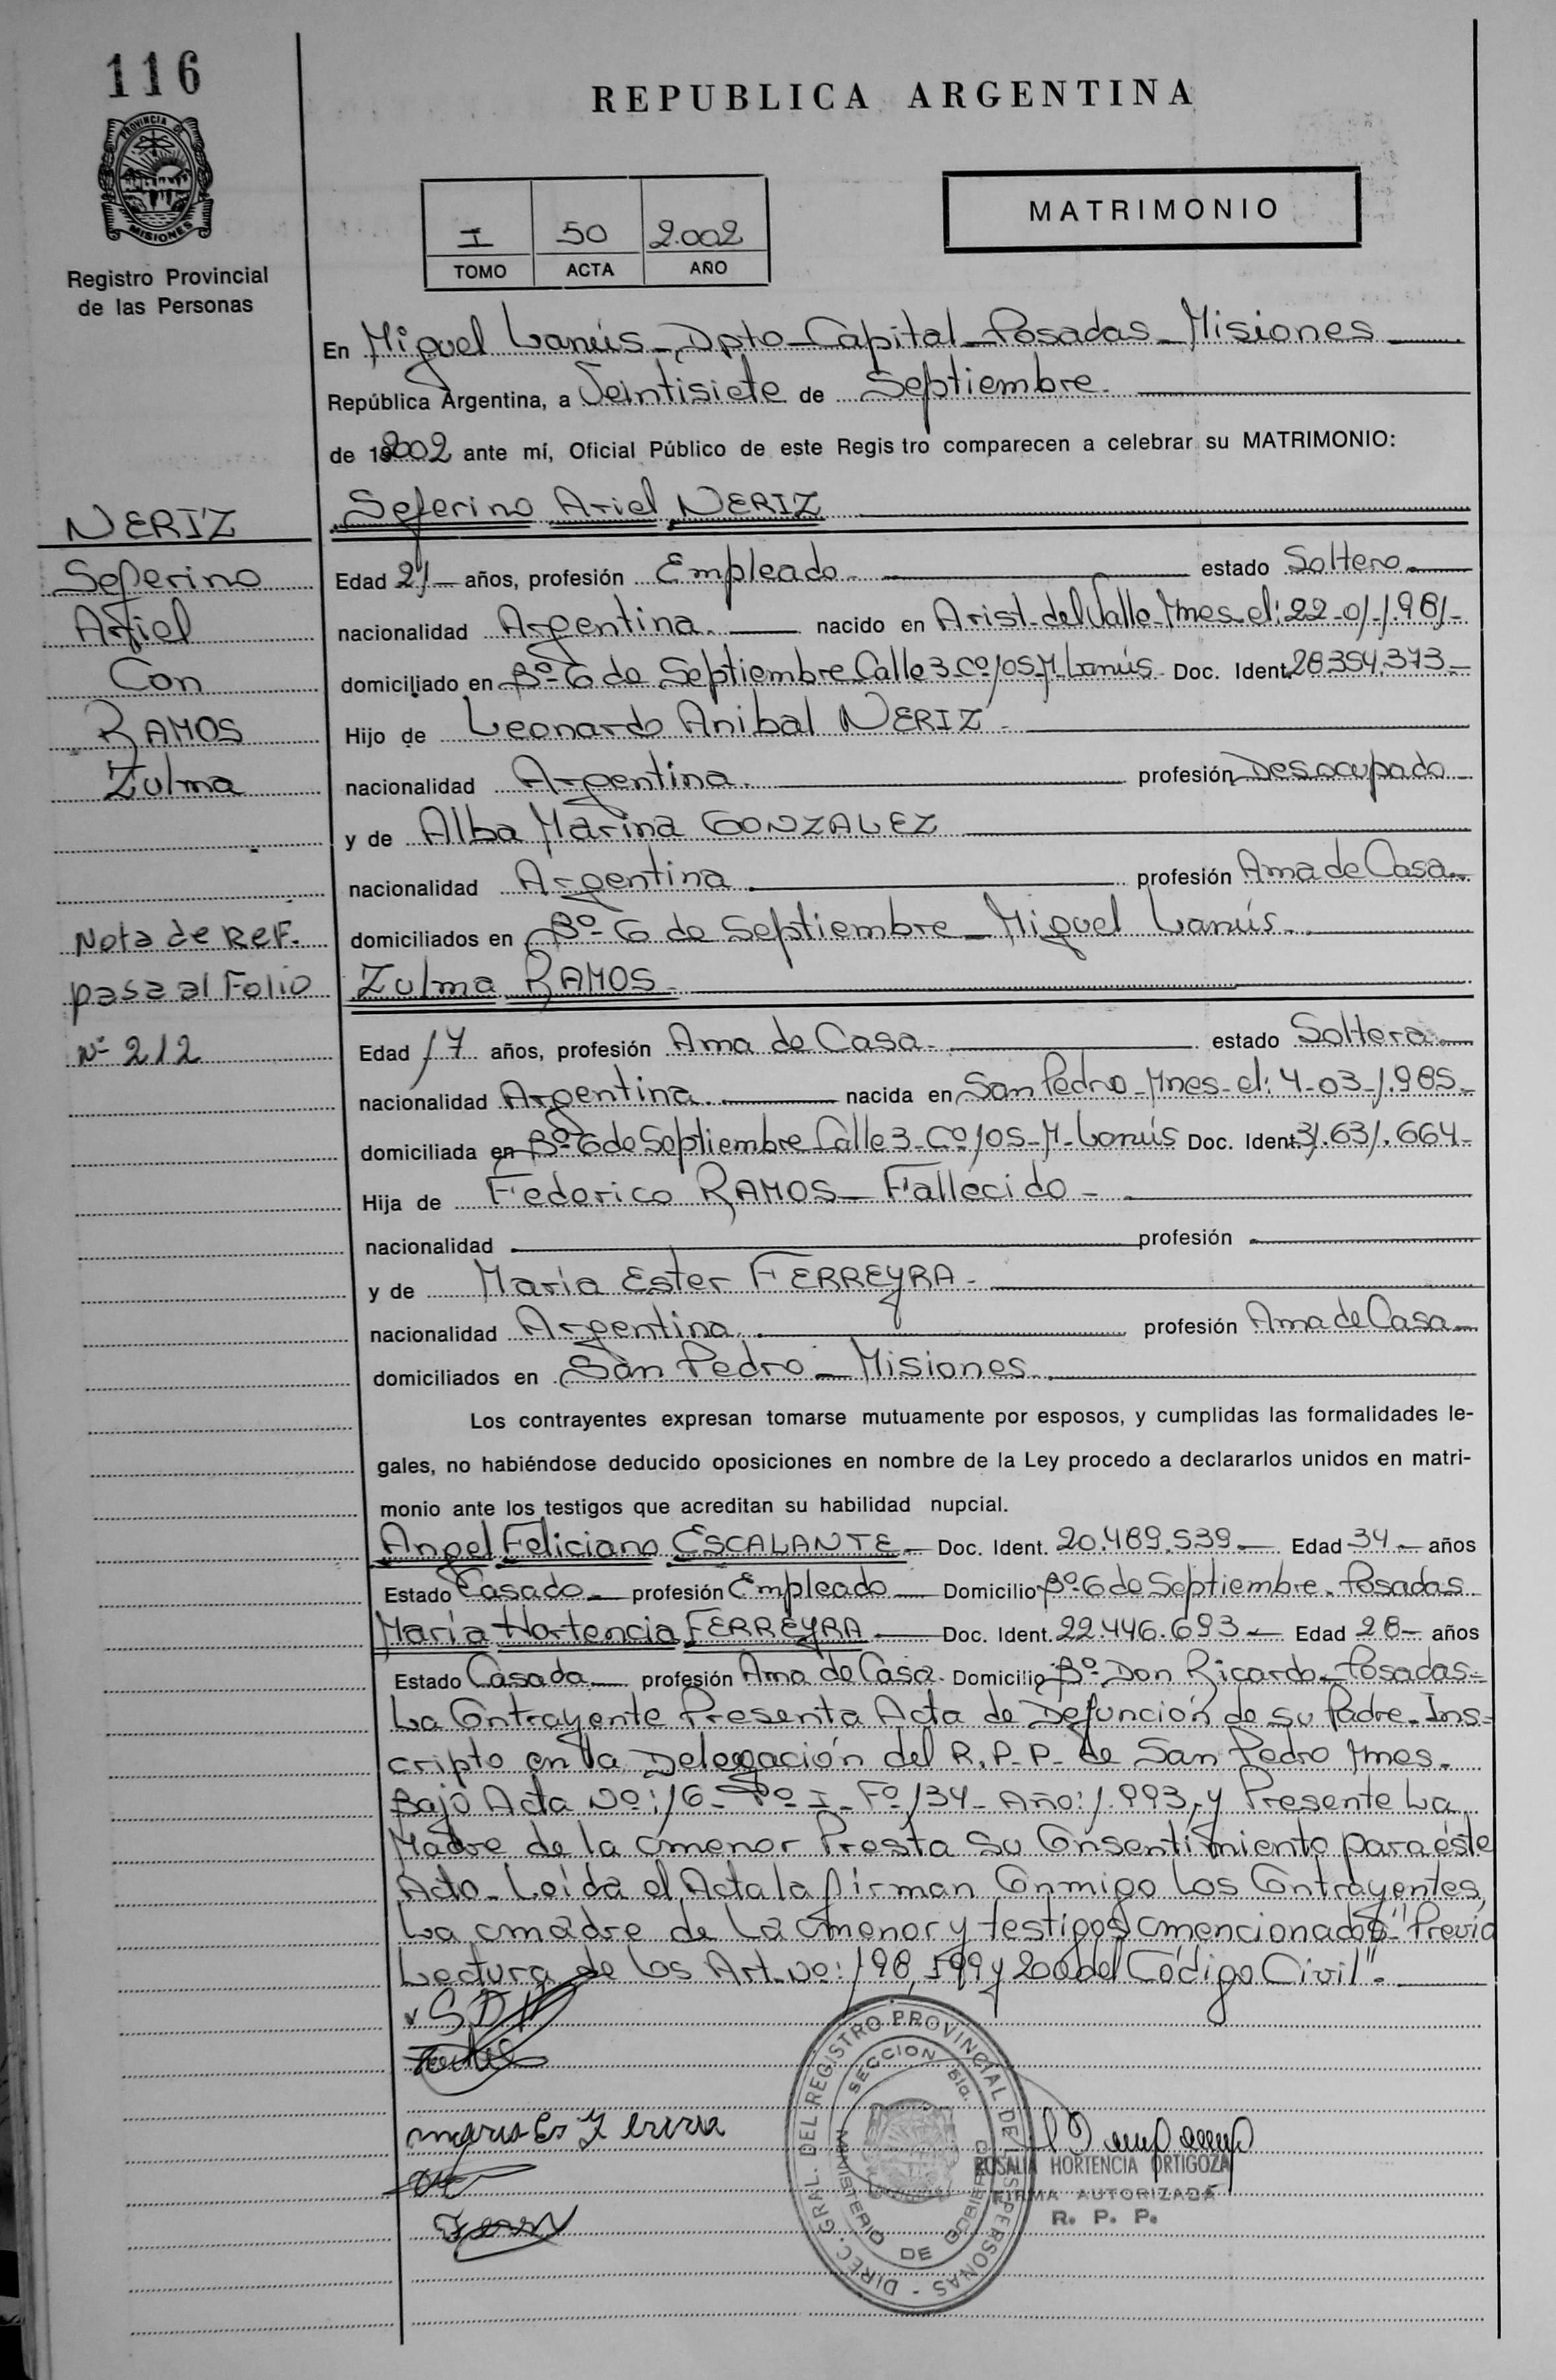 116
REPUBLICA ARGENTINA
PROVINCIA DE
MISIONES
Registro Provincial
de las Personas
I 50 2.002
TOMO ACTA AÑO
MATRIMONIO
En Miguel Lanús - Dpto - Capital - Posadas - Misiones
República Argentina, a Veintisiete de Septiembre.
de 192002 ante mí, Oficial Público de este Regis tro comparecen a celebrar su MATRIMONIO:
Seferino Ariel NERIZ
Edad 21 años, profesión Empleado estado Soltero
nacionalidad Argentina. nacido en Arist. del Valle Mnes el: 22-01-1.981-
domiciliado en Bº-6 de Septiembre Calle 3 Cº 105-M-Lanús Doc. Ident. 28.354.373-
Hijo de Leonardo Anibal NERIZ
nacionalidad Argentina. profesión Desocupado
y de Alba Marina GONZALEZ
nacionalidad Argentina profesión Ama de Casa
domiciliados en Bº-6 de Septiembre - Miguel Lanús.
Zulma RAMOS
Edad 17 años, profesión Ama de Casa estado Soltera
nacionalidad Argentina nacida en San Pedro - Mnes - el: 4-03-1.985-
domiciliada en Bº-6 de Septiembre Calle 3 - Cº 105-M-Lanús Doc. Ident. 31.631.664-
Hija de Federico RAMOS - Fallecido -
nacionalidad profesión
y de María Ester FERREYRA -
nacionalidad Argentina profesión Ama de Casa
domiciliados en San Pedro - Misiones
Los contrayentes expresan tomarse mutuamente por esposos, y cumplidas las formalidades le-
gales, no habiéndose deducido oposiciones en nombre de la Ley procedo a declararlos unidos en matri-
monio ante los testigos que acreditan su habilidad nupcial.
Angel Feliciano ESCALANTE - Doc. Ident. 20.489.539 - Edad 34 - años
Estado Casado - profesión Empleado - Domicilio Bº-6 de Septiembre - Posadas
María Hortencia FERREYRA - Doc. Ident. 22.446.693 - Edad 28 - años
Estado Casada - profesión Ama de Casa - Domicilio Bº-Don Ricardo - Posadas -
La Contrayente Presenta Acta de Defunción de su Padre - Ins-
cripto en la Delegación del R.P.P. de San Pedro Mnes-
Bajo Acta Nº: 16 - Tº I - Fº 134 - Año: 1.993, y Presente La
Madre de la menor Presta Su Consentimiento para éste
Acto - Leída el Acta la firman Conmigo Los Contrayentes,
La madre de La menor y testigos mencionados "Previa
Lectura de los Art. Nº: 198, 199 y 200 del Código Civil".
NERIZ
Seferino
Ariel
Con
RAMOS
Zulma
Nota de Ref.
pasa al Folio
Nº 212
DIREC. GRAL. DEL REGISTRO PROVINCIAL DE LAS PERSONAS
SECCION 5ta.
MINISTERIO DE GOBIERNO
ROSALIA HORTENCIA ORTIGOZA
FIRMA AUTORIZADA
R. P. P.